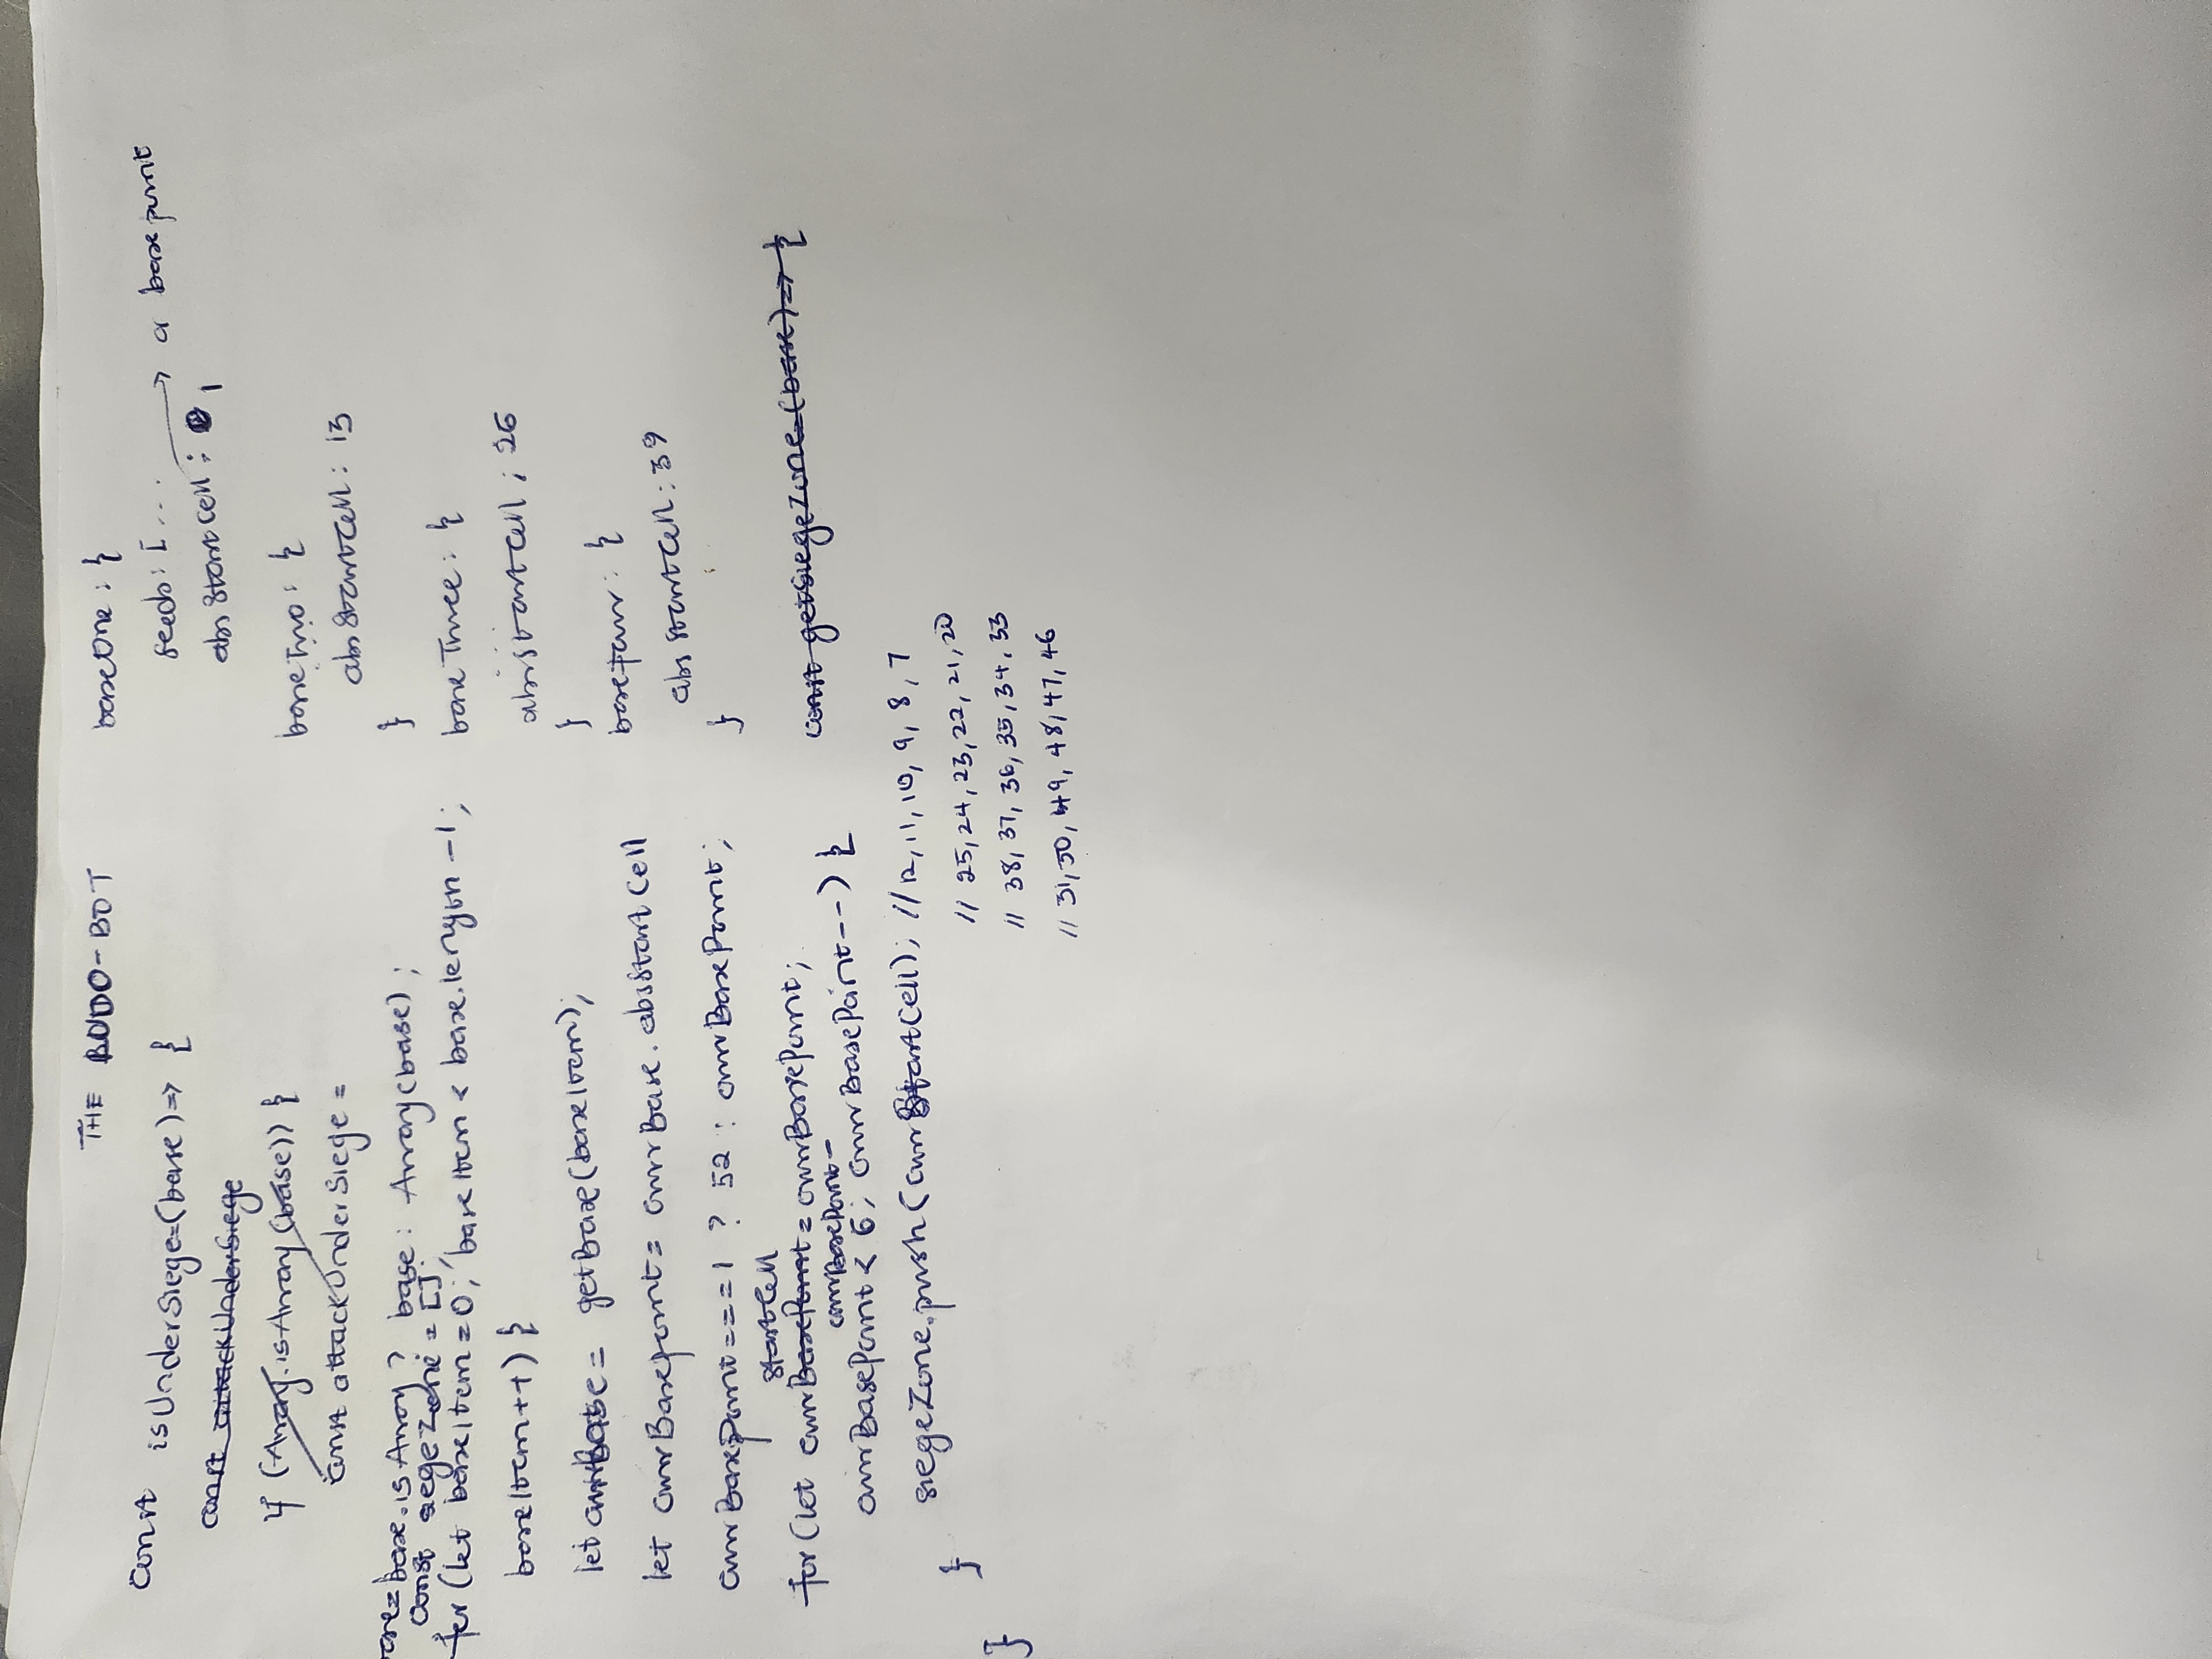 THE BUDO-BOT
const isUnderSiege=(base)=> {
const attackUnderSiege
if (Array.isArray(base)) {
const attackUnderSiege =
base.isArray ? base : Array(base);
const siegeZone = [];
for (let baseItem = 0; baseItem < base.length - 1;
baseItem++) {
let currBase = getBase(baseItem);
let currBasepoint = currBase.absStartCell
currBasepoint === 1 ? 52 : currBasePoint;
startCell
for (let currBasePoint = currBasePoint;
currBasePoint -
currBasePoint < 6; currBasePoint--) {
siegeZone.push(currStartCell); // 12, 11, 10, 9, 8, 7
// 25, 24, 23, 22, 21, 20
// 38, 37, 36, 35, 34, 33
// 51, 50, 49, 48, 47, 46
}
}
baseOne : {
seeds: [ ... → a base point
absStartCell : 1
baseTwo : {
absStartCell : 13
}
baseThree : {
absStartCell ; 26
}
baseFour : {
absStartCell : 39
}
const getSiegeZone=(base)=> {